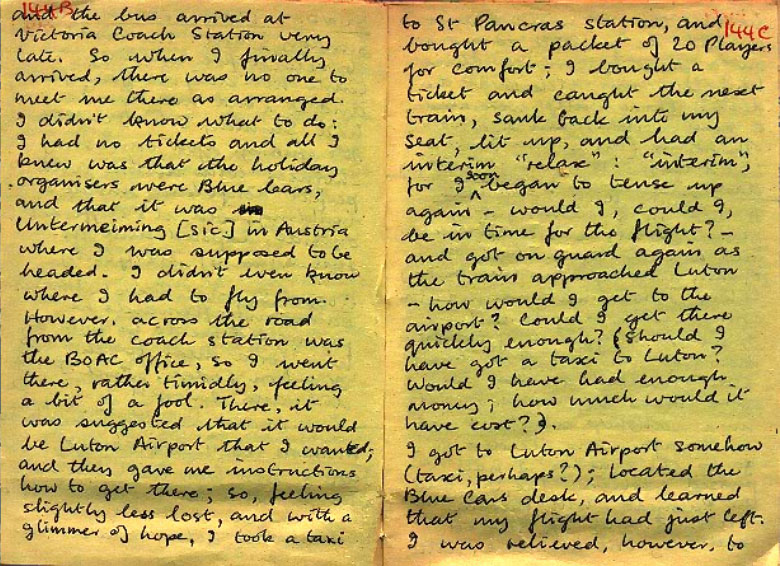 144B
and the bus arrived at
Victoria Coach Station very
late. So when I finally
arrived, there was no one to
meet me there as arranged.
I didn't know what to do:
I had no tickets and all I
knew was that the holiday
organisers were Blue Cars,
and that it was
Untermeiming [sic] in Austria
where I was supposed to be
headed. I didn't even know
where I had to fly from.
However, across the road
from the coach station was
the BOAC office, so I went
there, rather timidly, feeling
a bit of a fool. There, it
was suggested that it would
be Luton Airport that I wanted;
and they gave me instructions
how to get there; so, feeling
slightly less lost, and with a
glimmer of hope, I took a taxi
144C
to St Pancras station, and
bought a packet of 20 Players
for comfort; I bought a
ticket and caught the next
train, sank back into my
seat, lit up, and had an
interim "relax": "interim",
for I soon began to tense up
again – would I, could I,
be in time for the flight? –
and got on guard again as
the train approached Luton
– how would I get to the
airport? Could I get there
quickly enough? (Should I
have got a taxi to Luton?
Would I have had enough
money; how much would it
have cost?).
I got to Luton Airport somehow
(taxi, perhaps?); located the
Blue Cars desk, and learned
that my flight had just left.
I was relieved, however, to